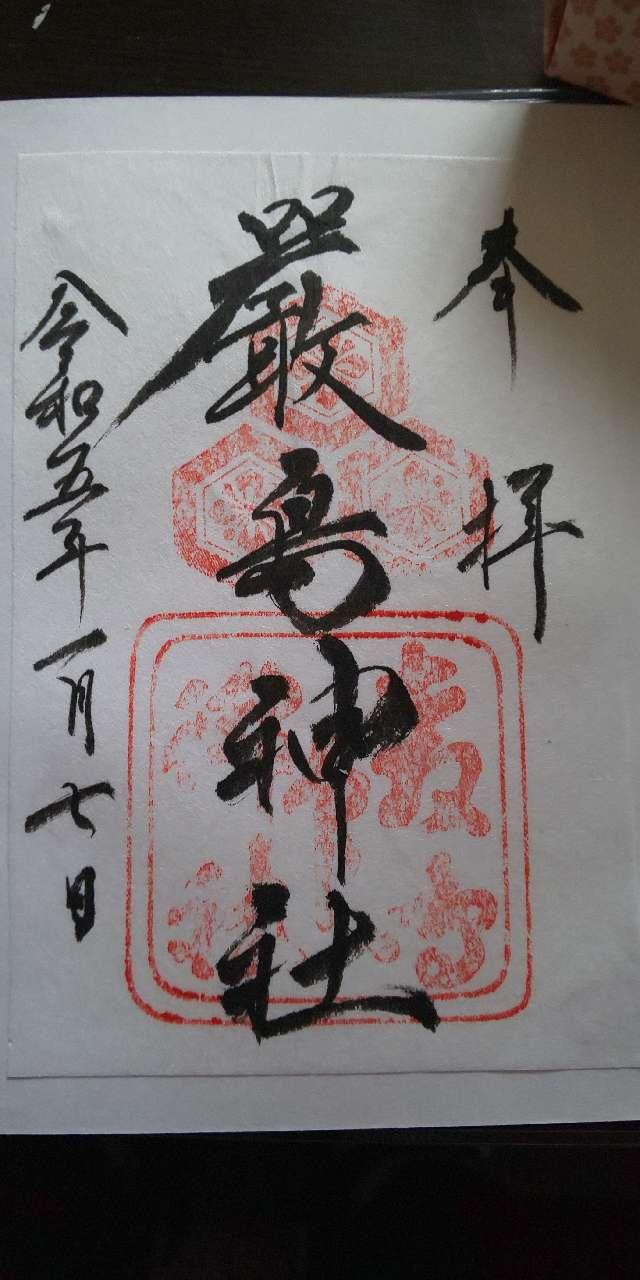 奉拝
嚴島神社
令和五年一月七日